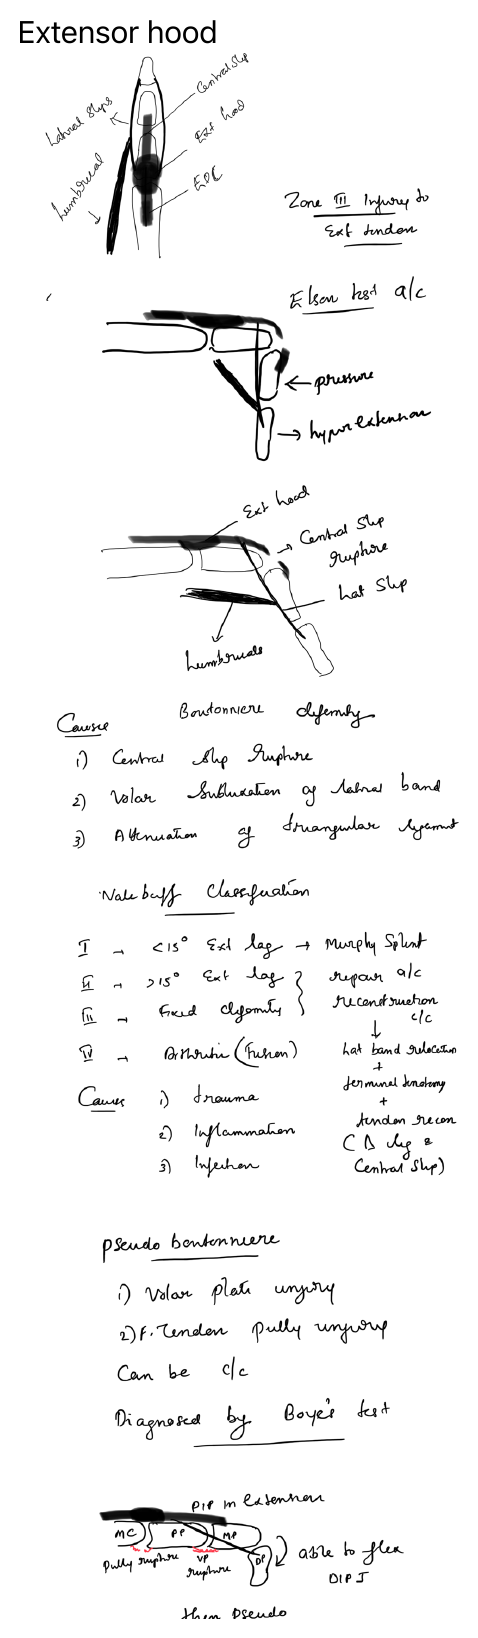 Extensor hood
Central slip
Lateral slips
Ext hood
EDC
Lumbrical
Zone III Injury to
Ext tendon
Elson test a/c
pressure
hyperextension
Ext hood
Central Slip
rupture
Lat Slip
Lumbricals
Boutonniere deformity
Causes
1) Central slip Rupture
2) Volar Subluxation of lateral band
3) Attenuation of triangular ligament
Nalebuff Classification
I → <15° Ext lag → Murphy Splint
II → >15° Ext lag } repair a/c
III → Fixed deformity } reconstruction
c/c
IV → Arthritic (Fusion)
Lat band relocation
+
terminal tenotomy
+
tendon recon
(Δ lig &
Central Slip)
Causes 1) trauma
2) Inflammation
3) Infection
Pseudo boutonniere
1) Volar plate injury
2) F. Tendon pully injury
Can be c/c
Diagnosed by Boye's test
PIP in extension
MC PP MP
DP
Pully rupture
VP
rupture
able to flex
DIP J
then Pseudo